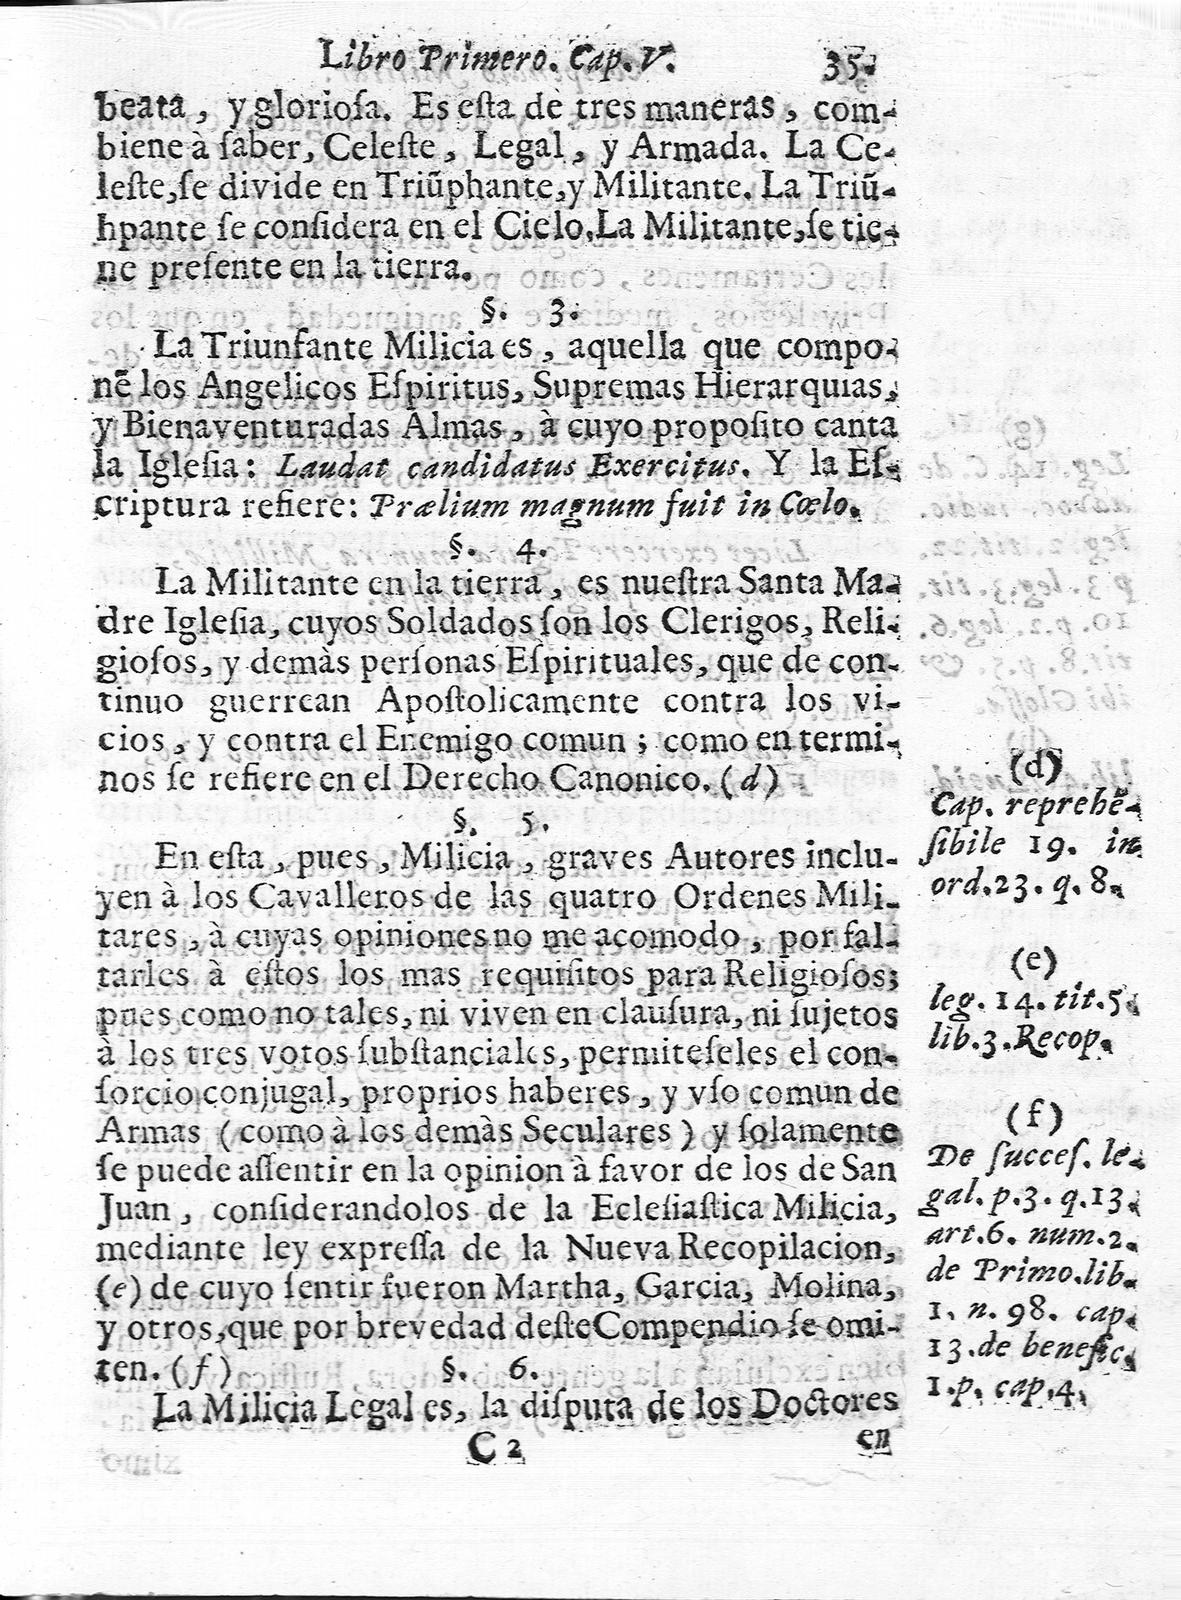 Libro Primero. Cap. V. 35.
beata, y gloriosa. Es esta de tres maneras, com-
biene à saber, Celeste, Legal, y Armada. La Ce-
leste, se divide en Triũphante, y Militante. La Triũ-
hpante se considera en el Cielo, La Militante, se tie-
ne presente en la tierra.
§. 3.
La Triunfante Milicia es, aquella que compo-
nẽ los Angelicos Espiritus, Supremas Hierarquias,
y Bienaventuradas Almas, à cuyo proposito canta
la Iglesia: Laudat candidatus Exercitus. Y la Es-
criptura refiere: Prælium magnum fuit in Cœlo.
§. 4.
La Militante en la tierra, es nuestra Santa Ma-
dre Iglesia, cuyos Soldados son los Clerigos, Reli-
giosos, y demàs personas Espirituales, que de con-
tinuo guerrean Apostolicamente contra los vi-
cios, y contra el Enemigo comun; como en termi-
nos se refiere en el Derecho Canonico. (d)
§. 5.
En esta, pues, Milicia, graves Autores inclu-
yen à los Cavalleros de las quatro Ordenes Mili-
tares, à cuyas opiniones no me acomodo, por fal-
tarles à estos los mas requisitos para Religiosos;
pues como no tales, ni viven en clausura, ni sujetos
à los tres votos substanciales, permiteseles el con-
sorcio conjugal, proprios haberes, y vso comun de
Armas (como à los demàs Seculares) y solamente
se puede assentir en la opinion à favor de los de San
Juan, considerandolos de la Eclesiastica Milicia,
mediante ley expressa de la Nueva Recopilacion,
(e) de cuyo sentir fueron Martha, Garcia, Molina,
y otros, que por brevedad deste Compendio se omi-
ten. (f) §. 6.
La Milicia Legal es, la disputa de los Doctores
C 2 en
(d)
Cap. reprehẽ-
sibile 19. in
ord. 23. q. 8.
(e)
leg. 14. tit. 5.
lib. 3. Recop.
(f)
De succes. le-
gal. p. 3. q. 13.
art. 6. num. 2.
de Primo. lib.
1. n. 98. cap.
13. de benefic.
1. p. cap. 4.